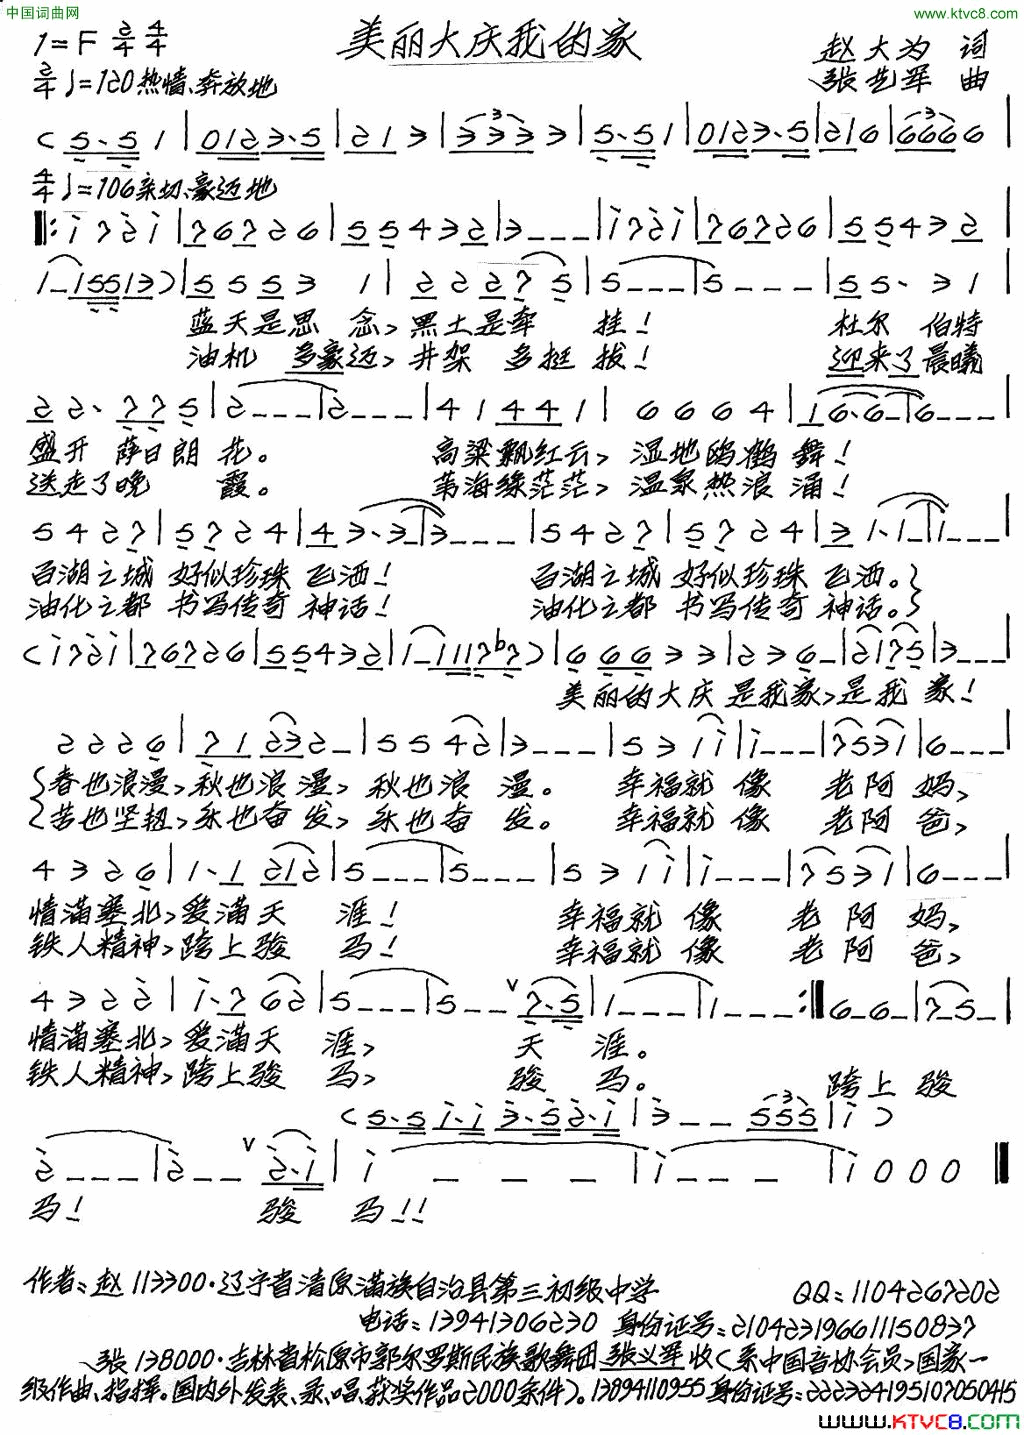 中国词曲网
www.ktvc8.com
美丽大庆我的家
1=F 2/4 4/4
赵大为 词
张艺军 曲
2/4 ♩=120热情、奔放地
(5·5 1|0123·5|21 3|3333 3|5·5 1|0123·5|21 6|6666 0|
4/4 ♩=106亲切、豪迈地
‖:i 7 2 i|7676 26|55432|3---|i 7 2 i|7676 26|55432|
1-155 13)|5 5 5 3 1|2 2 2 7 5|5---|5---|5 5· 3 1|
蓝天是思 念,黑土是牵 挂! 杜尔 伯特
油机 多豪迈,井架 多挺 拔! 迎来了晨曦
2 2· 7 7 5|2---|2---|4 1 4 4 1|6 6 6 4|1 6·6-|6---|
盛开 萨日朗 花。 高粱飘红云,湿地鸥鹤 舞!
送走了晚 霞。 苇海绿茫茫,温泉热浪 涌!
5 4 2 7|5 7 2 4|4 3·3-|3---|5 4 2 7|5 7 2 4|3 1·1-|1---|
百湖之城 好似珍珠 飞洒! 百湖之城 好似珍珠 飞洒。
油化之都 书写传奇 神话! 油化之都 书写传奇 神话。
(i 7 2 i|7676 26|55432|i-i117b7)|6 6 6 3 3|2 3 6-|2 1 7 5|3---|
美丽的大庆 是我家,是 我 家!
2 2 2 6|7 1 2 3 2-|5 5 4 2|3---|5 3 1 i|i---|7 5 3 1|6---|
春也浪漫,秋也浪 漫,秋也浪 漫。 幸福就 像 老阿 妈,
苦也坚韧,永也奋 发,永也奋 发。 幸福就 像 老阿 爸,
4 3 2 6|1·1 2 1 2|5---|5---|5 3 i i|i---|7 5 3 1|6---|
情满塞北,爱满天 涯! 幸福就 像 老 阿 妈,
铁人精神,跨上骏 马! 幸福就 像 老 阿 爸,
4 3 2 2|i·7 6 2|5---|5--∨7·5|1---|1---:‖6-6-|7-5-|
情满塞北,爱满天 涯, 天 涯。
铁人精神,跨上骏 马, 骏 马。 跨上 骏
(5·5 i·i 3·5 2·i|3--555|i)
2---|2--∨2·i|i---|i---|i 0 0 0‖
马! 骏 马!!
作者:赵 113300·辽宁省清原满族自治县第三初级中学 QQ:1104267202
电话:13941306230 身份证号:210423196611150837
张 138000·吉林省松原市郭尔罗斯民族歌舞团张义军收(系中国音协会员,国家一
级作曲、指挥。国内外发表、录、唱、获奖作品2000余件)。13894110955身份证号:222324195107050415
www.KTVC8.com